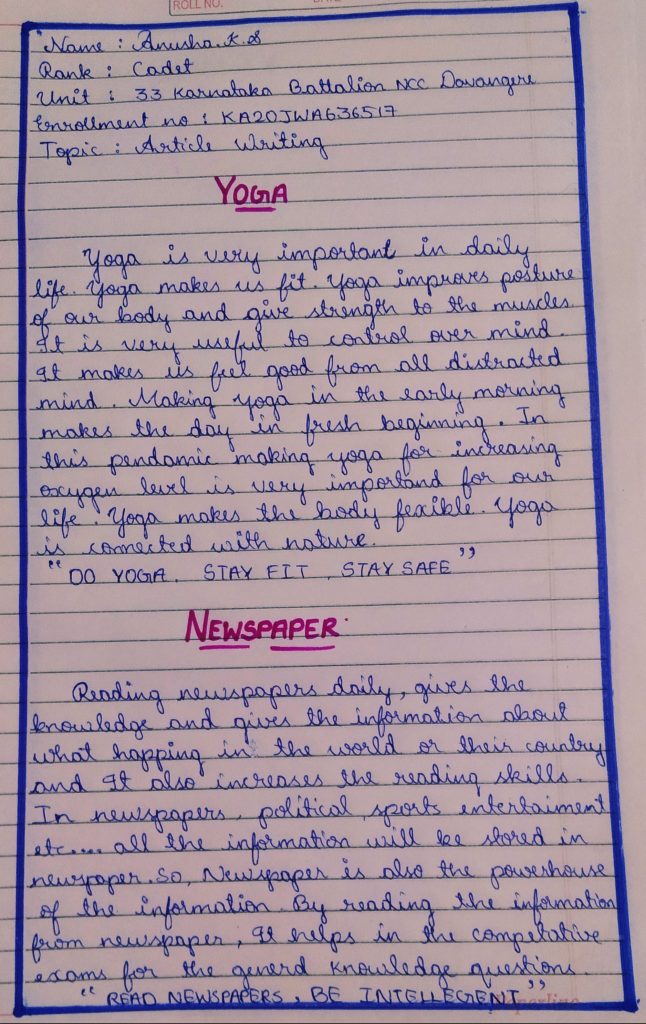 ROLL NO.
Name : Anusha.K.S
Rank : Cadet
Unit : 33 Karnataka Battalion NCC Davangere
Enrollment no : KA20JWA636517
Topic : Article Writing
YOGA
Yoga is very important in daily
life. Yoga makes us fit. Yoga improves posture
of our body and give strength to the muscles
It is very useful to control over mind.
It makes us feel good from all distracted
mind. Making yoga in the early morning
makes the day in fresh beginning. In
this pendamic making yoga for increasing
oxygen level is very importand for our
life. Yoga makes the body fexible. Yoga
is connected with nature.
"DO YOGA, STAY FIT, STAY SAFE"
NEWSPAPER
Reading newspapers daily, gives the
knowledge and gives the information about
what happing in the world or their country
and It also increases the reading skills.
In newspapers, political, sports entertaiment
etc.... all the information will be stored in
newspaper. So, Newspaper is also the powerhouse
of the information. By reading the information
from newspaper, It helps in the competative
exams for the generd knowledge questions.
"READ NEWSPAPERS, BE INTELLEGENT"